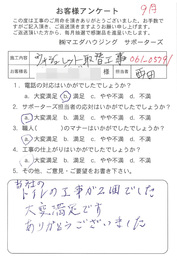 お客様アンケート
9月
この度は工事のご用命を頂きありがとうございました。お手数
ですがご記入頂き、ご返送頂けますでしょうか。
工事向上のため頂きますようお願い申し上げます。
ご返送頂いた方から、毎月抽選で感謝品を進呈致します。
㈱マエダハウジング サポーターズ
工事件名
ウォシュレット取替工事
お客様名
担当者
西田
1. 電話の対応はいかがでしたでしょうか?
a. 大変満足 b. 満足 c. やや不満 d. 不満
2. サポーターズ担当者の応対はいかがでしたでしょうか?
a. 大変満足 b. 満足 c. やや不満 d. 不満
3. 職人( )のマナーはいかがでしたでしょうか?
a. 大変満足 b. 満足 c. やや不満 d. 不満
4. 工事の仕上がりはいかがでしたでしょうか?
a. 大変満足 b. 満足 c. やや不満 d. 不満
その他、ご意見・ご要望などお聞かせください。
トイレの工事が2回でした
大変満足です
ありがとうございました